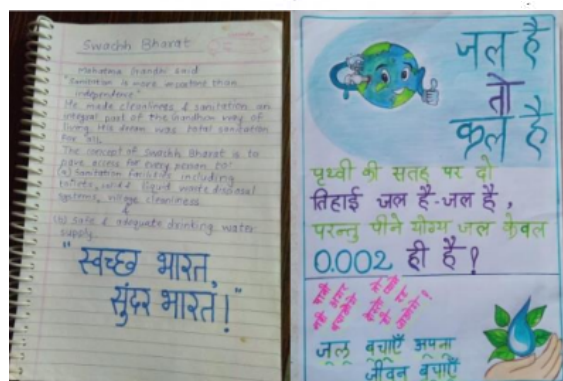 Swachh Bharat
Mahatma Gandhi said
"Sanitation is more important than
independence."
He made cleanliness & sanitation an
integral part of the Gandhian way of
living. His dream was total sanitation
for all.
The concept of Swachh Bharat is to
pave access for every person to:
(a) Sanitation facilities including
toilets, solid & liquid waste disposal
systems, village cleanliness
&
(b) safe & adequate drinking water
supply.
"स्वच्छ भारत,
सुंदर भारत!"
जल है
तो
कल है
पृथ्वी की सतह पर दो
तिहाई जल है-जल है,
परन्तु पीने योग्य जल केवल
0.002 ही है?
जल बचाएँ अपना
जीवन बचाएँ